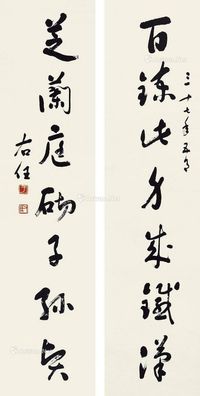 百鍊此身成鐵漢
三十七年五月
芝蘭庭砌子孫賢
右任